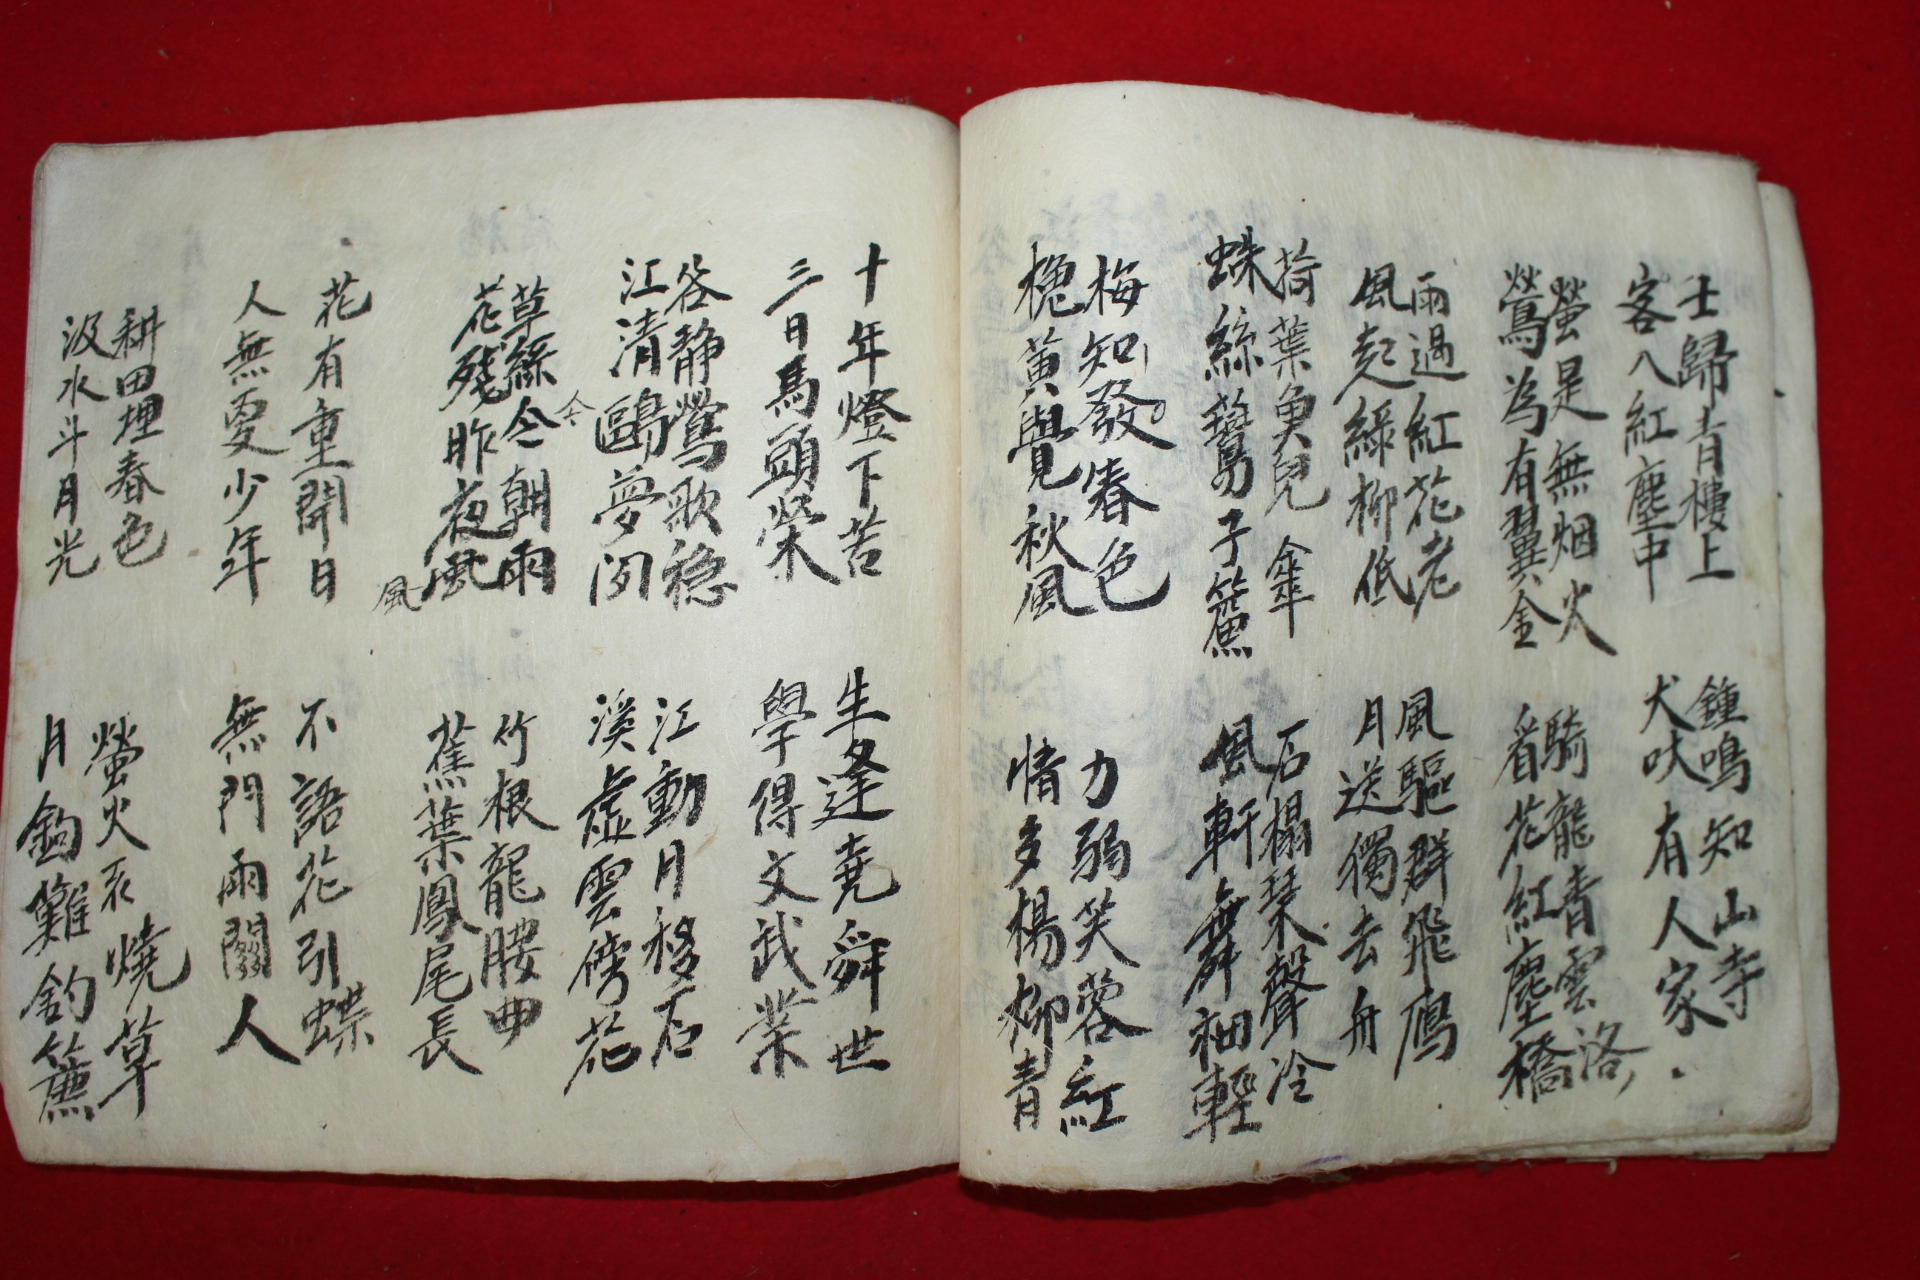 士歸青樓上
客入紅塵中
螢是無烟火
鶯為有翼金
雨過紅花老
風起綠柳低
荷葉魚兒傘
蛛絲鷰子簾
梅知發春色
槐黃覺秋風
鍾鳴知山寺
犬吠有人家
騎龍青雲洛
看花紅塵橋
風驅群飛鴈
月送獨去舟
石榻琴聲冷
風軒舞袖輕
力弱芙蓉紅
情多楊柳青
十年燈下苦
三日馬頭榮
谷静鶯歌穏
江清鷗夢闲
草綠今朝雨
今
花殘昨夜風
風
花有重開日
人無更少年
耕田埋春色
汲水斗月光
生逢堯舜世
學得文武業
江動月移石
溪虛雲傍花
竹根龍腰曲
蕉葉鳳尾長
不語花引蝶
無門雨關人
螢火不燒草
月鉤難釣簾